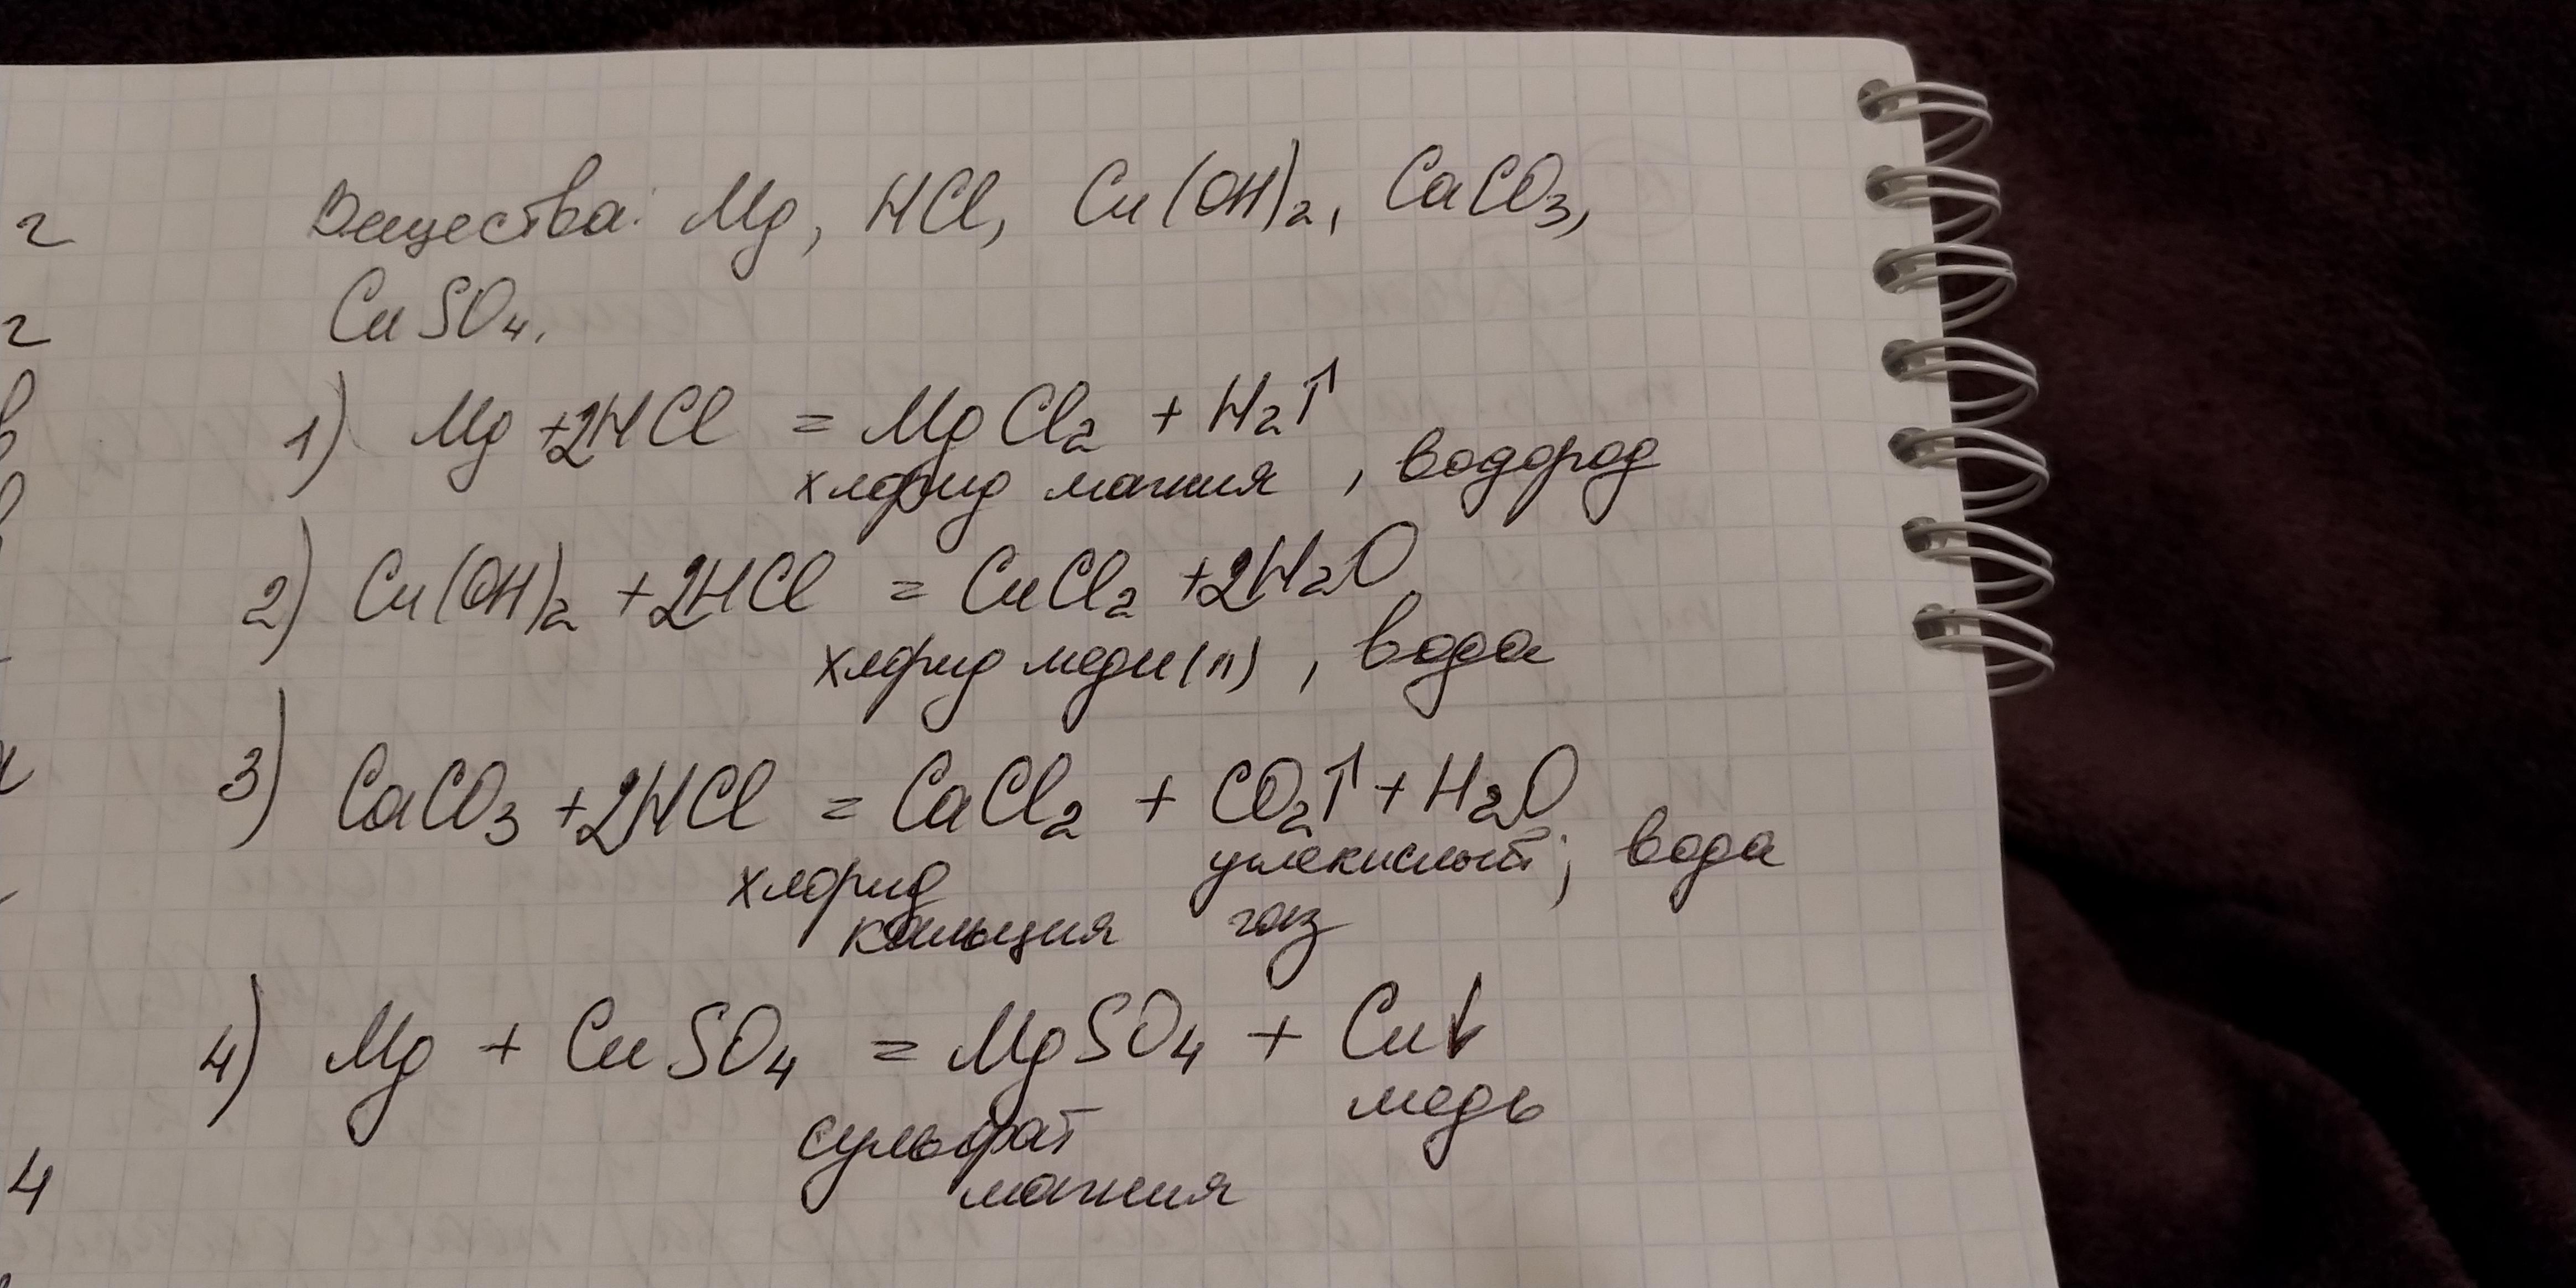 Вещества: Mg, HCl, Cu(OH)₂, CaCO₃,
CuSO₄.
1) Mg + 2HCl = MgCl₂ + H₂↑
хлорид магния, водород
2) Cu(OH)₂ + 2HCl = CuCl₂ + 2H₂O
хлорид меди(II), вода
3) CaCO₃ + 2HCl = CaCl₂ + CO₂↑ + H₂O
хлорид углекислый; вода
кальция газ
4) Mg + CuSO₄ = MgSO₄ + Cu↓
медь
сульфат
магния
г
г
в
4